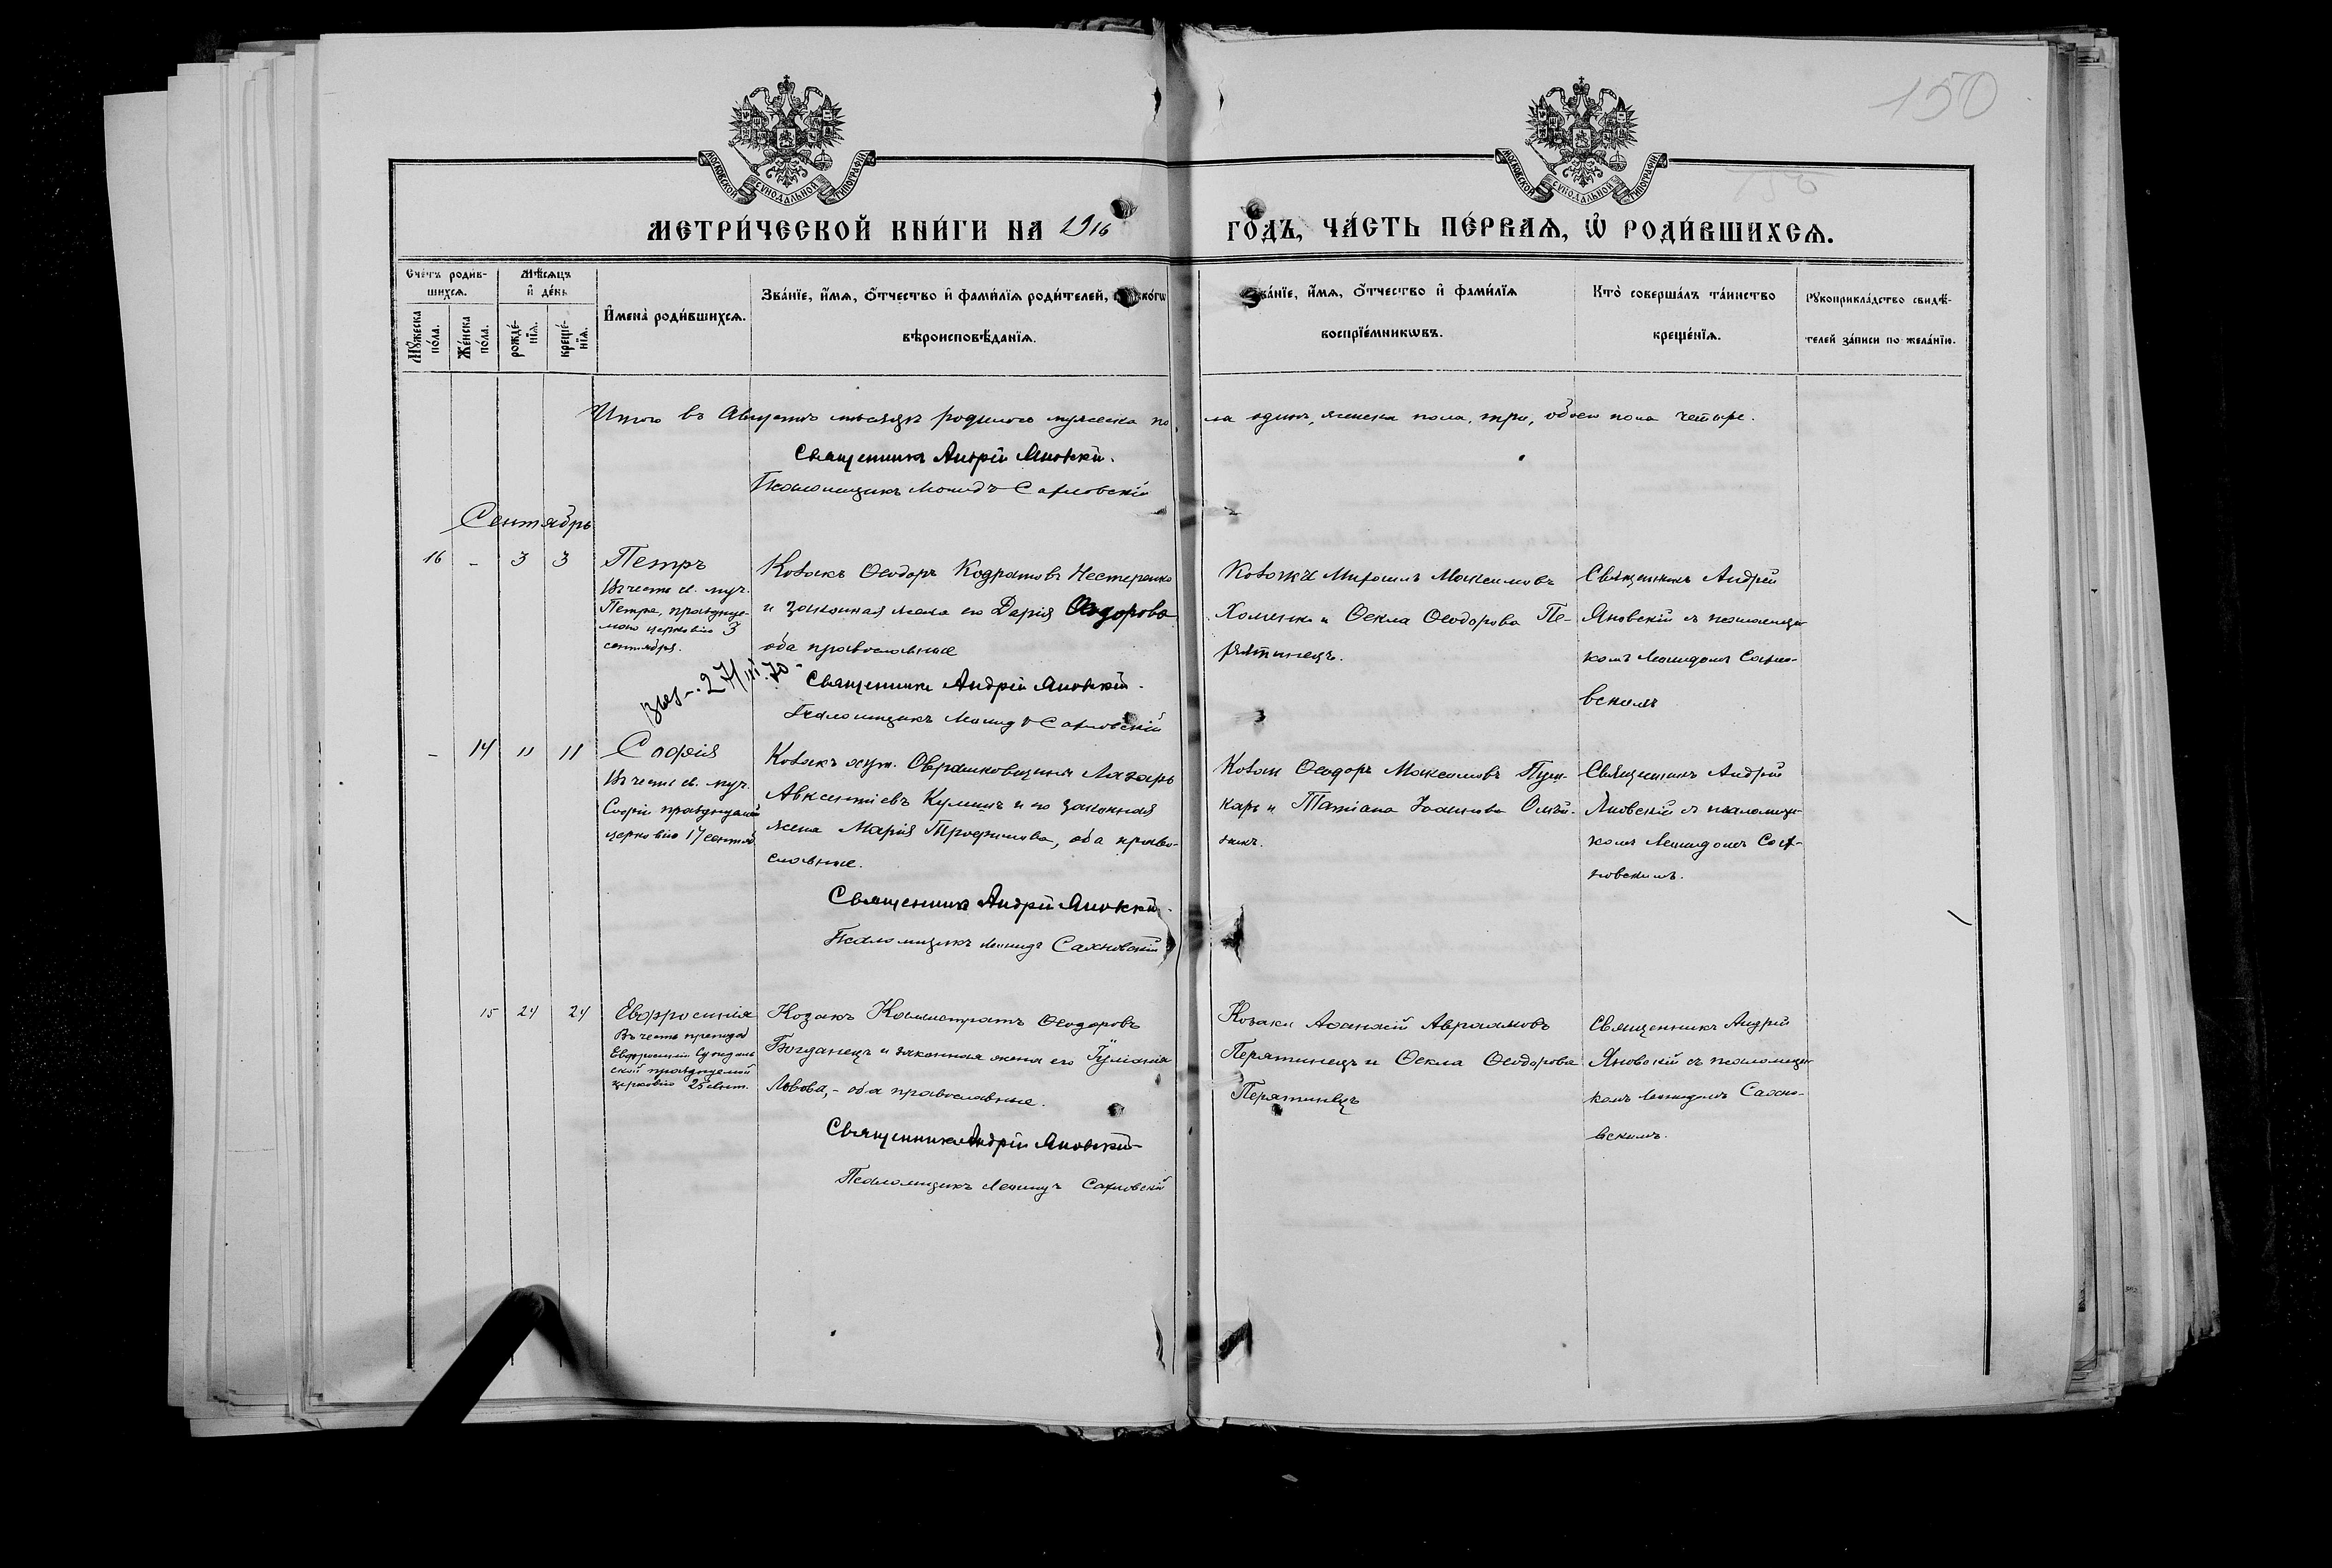 150
МОСКОВСКОЙ СѴНОДАЛЬНОЙ ТИПОГРАФІИ
МОСКОВСКОЙ СѴНОДАЛЬНОЙ ТИПОГРАФІИ
МЕТРИ́ЧЕСКОЙ КНИ́ГИ НА 1916
ГО́ДЪ, ЧА́СТЬ ПЕ́РВАЯ, Ѡ҆ РОДИ́ВШИХСЯ.
Сче́тъ роди́в-
шихся.
Мꙋ́жеска по́ла.
Же́нска по́ла.
Мѣ́сяцъ
и҆ де́нь
рожде́-
нїя.
креще́-
нїя.
И҆мена̀ роди́вшихся.
Зва́нїе, и҆́мя, ѻ҆́тчество и҆ фами́лїя роди́телей,
вѣроисповѣ́данїя.
Зва́нїе, и҆́мя, ѻ҆́тчество и҆ фами́лїя
воспрїе́мникѡвъ.
Кто̀ соверша́лъ та́инство
креще́нїя.
Рꙋкоприкла́дство свидѣ́-
телей за́писи по жела́нїю.
Итого въ Августѣ мѣсяцѣ родилось мужеска по
ла одинъ, женска пола, три, обоего пола четыре.
Священникъ Андрій Яновскій.
Псаломщикъ Леонидъ Сахновскій
Сентябрь
16 - 3 3
Петръ
Въ честь св. муч.
Петра, празднуе-
маго церковію 3
сентября.
выд. 27/III.70
Козакъ Ѳеодоръ Кодратовъ Нестеренко
и законная жена его Дарія Ѳеодорова
оба православные
Священникъ Андрій Яновскій.
Псаломщикъ Леонидъ Сахновскій
Козаки Михаилъ Максимовъ
Хоменко и Ѳекла Ѳеодорова Пе-
рятинецъ.
Священникъ Андрей
Яновскій съ псаломщи-
комъ Леонидомъ Сахно-
вскимъ
- 14 11 11
Софія
Въ честь св. муч.
Софіи празднуемой
церковію 17 сентяб.
Козакъ хут. Овраменковщини Лазарь
Авксентіевъ Кулишъ и его законная
жена Марія Трофимова, оба право-
славные.
Священникъ Андрій Яновскій.
Псаломщикъ Леонидъ Сахновскій
Козаки Ѳеодоръ Максимовъ Пуш-
карь и Татіана Іоаннова Олѣй-
никъ.
Священникъ Андрей
Яновскій съ псаломщи-
комъ Леонидомъ Сах-
новскимъ.
15 24 24
Евфросинія
Въ честь преподоб
Евфросиніи Суздаль
ской празднуемой
церковію 25 сент.
Козакъ Каллистратъ Ѳеодоровъ
Богданецъ и законная жена его Іуліанія
Львова, - оба православные.
Священникъ Андрій Яновскій
Псаломщикъ Леонидъ Сахновскій
Козаки Аѳанасій Авраамовъ
Перятинецъ и Ѳекла Ѳеодорова
Перятинецъ
Священникъ Андрій
Яновскій съ псаломщи-
комъ Леонидомъ Сахно-
вскимъ.